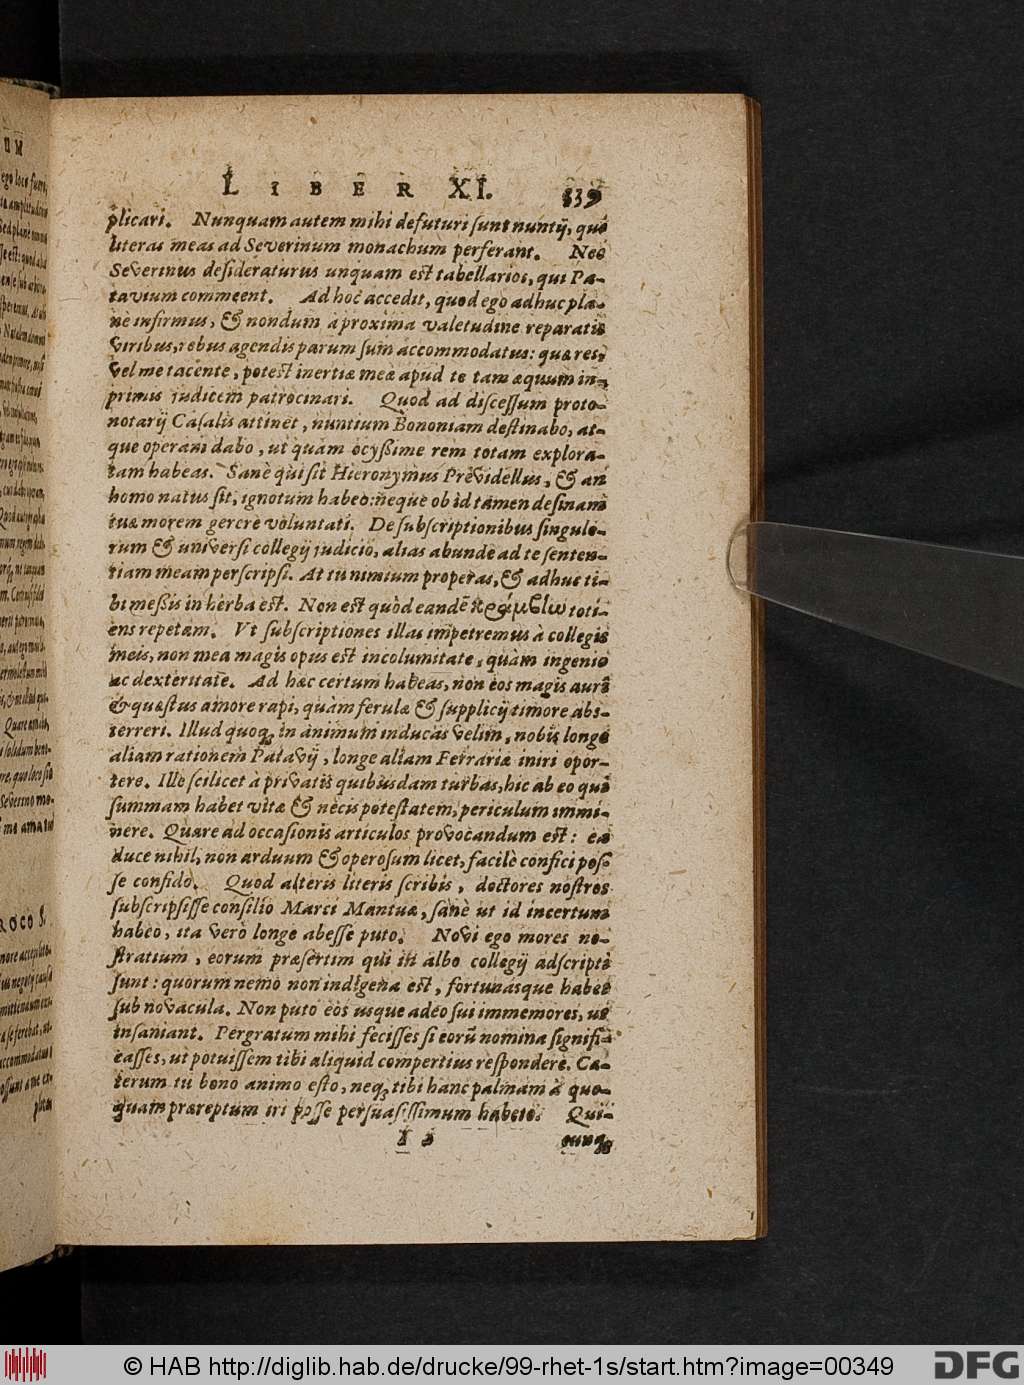 LIBER XI. 339
plicari. Nunquam autem mihi defuturi sunt nuntij, qui
literas meas ad Severinum monachum perferant. Nec
Severinus desideraturus unquam est tabellarios, qui Pa-
tavium commeent. Ad hoc accedit, quod ego adhuc pla-
nè infirmus, & nondum à proxima valetudine reparatis
viribus, rebus agendis parum sum accommodatus: quæ res,
vel me tacente, potest inertiæ meæ apud te tam æquum in-
primis judicem patrocinari. Quod ad discessum proto-
notarij Casalis attinet, nuntium Bononiam destinabo, at-
que operam dabo, ut quàm ocyßime rem totam explora-
tam habeas. Sanè qui sit Hieronymus Prevìdellus, & an
homo natus sit, ignotum habeo: neque ob id tamen desinam
tuæ morem gerere voluntati. De subscriptionibus singulo-
rum & universi collegij judicio, alias abundè ad te senten-
tiam meam perscripsi. At tu nimium properas, & adhuc ti-
bi meßis in herba est. Non est quòd eandē κράμβlω toti-
ens repetam. Vt subscriptiones illas impetremus à collegis
meis, non mea magis opus est incolumitate, quàm ingenio
ac dexteritate. Ad hæc certum habeas, non eos magis auri
& quæstus amore rapi, quàm ferulæ & supplicij timore abs-
terreri. Illud quoq; in animum inducas velim, nobis longè
aliam rationem Patavij, longe aliam Ferrariæ iniri opor-
tere. Ille scilicet à privatis quibusdam turbas, hic ab eo qui
summam habet vitæ & necis potestatem, periculum immi-
nere. Quare ad occasionis articulos provocandum est: ea
duce nihil, non arduum & operosum licet, facilè confici pos-
se confido. Quod alteris literis scribis, doctores nostros
subscripsisse consilio Marci Mantuæ, sanè ut id incertum
habeo, ita verò longe abesse puto. Novi ego mores no-
stratium, eorum præsertim qui in albo collegij adscripti
sunt: quorum nemo non indigena est, fortunasque habet
sub novacula. Non puto eos usque adeo sui immemores, ut
insaniant. Pergratum mihi fecisses si eorū nomina signifi-
casses, ut potuissem tibi aliquid compertius respondere. Cæ-
terum tu bono animo esto, neq; tibi hanc palmam à quo-
quam præreptum iri posse persuasissimum habeto. Qui-
cunq;
© HAB http://diglib.hab.de/drucke/99-rhet-1s/start.htm?image=00349
DFG